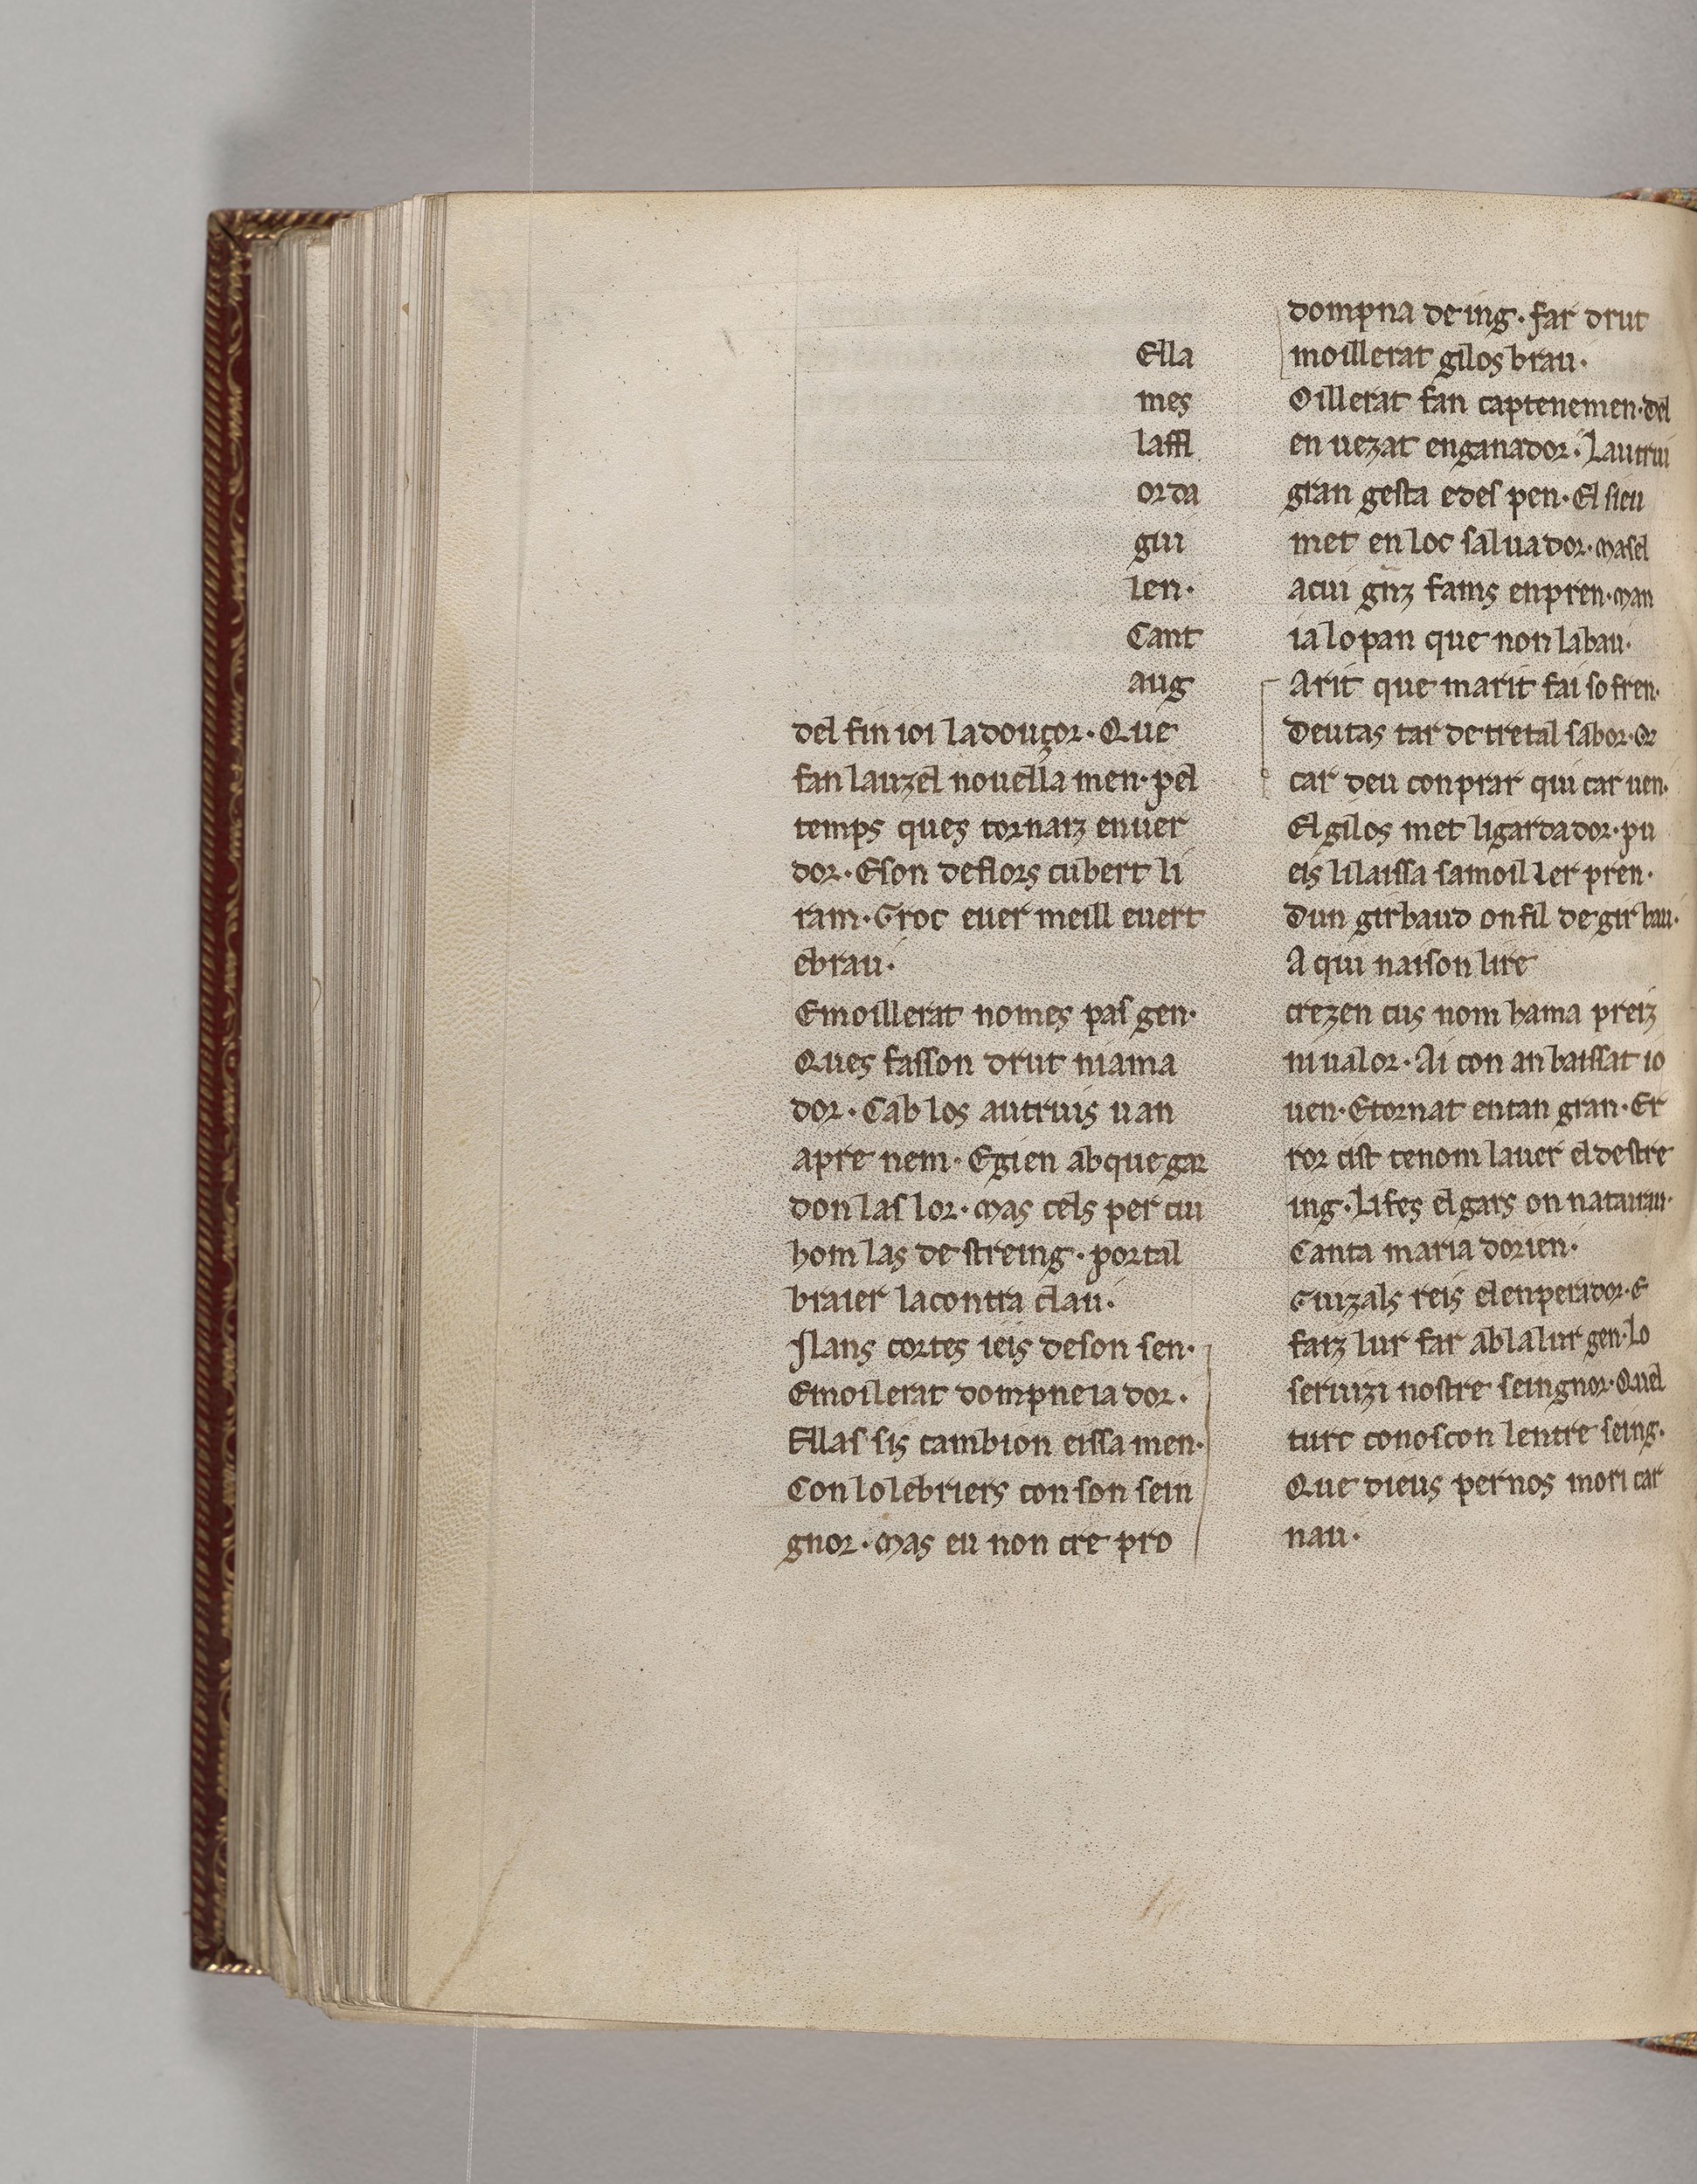 Ella
mes
laffl
orda
gui
len·
Cant
aug
del fin ioi ladouçor· Que
fan lauzel nouella men· pel
temps ques tornatz enuer
dor· Eson deflors cubert li
ram· Groc euermeill euert
ebrau·
Emoillerat nomes pas gen·
Ques fasson drut niama
dor· Cab los autruis uan
apre nem· Egien abque gar
don las lor· mas cels per cui
hom las destreing· portal
braier lacontra clau·
Nans cortes ieis deson sen·
Emoilerat dompneiador·
Ellas sis cambion eissa men·
Con lo lebriers con son sein
gnor· mas eu non cre pro
dompna deing· far drut
moillerat gilos brau·
Oillerat fan captenemen· del
en uezat enganador· Lautrui
gran gesta edes pen· El sieu
met en loc saluador· mas el
acui fams enpren· man
ia lo pan que non labau·
Arit que marit fai sofren·
Deu tastar detretal sabor· Or
car deu conprar qui car uen·
El gilos met li gardador· pu
eis li laissa samoiller pren·
Dun girbaud on fil de girbau·
A qui naison li re
crezen cus nom hama pretz
ni ualor· Ai con an baissat io
uen· Etornat entan gran· Er
ror cist tenom lauer el destre
ing· Lifes el gars on naturau·
Canta maria dorien·
Guizals reis elenperador· E
fatz lur far ab lalur gen· lo
seruizi nostre seingnor· Quel
turc conoscon lentre seing·
Que dieus per nos mori car
nau·